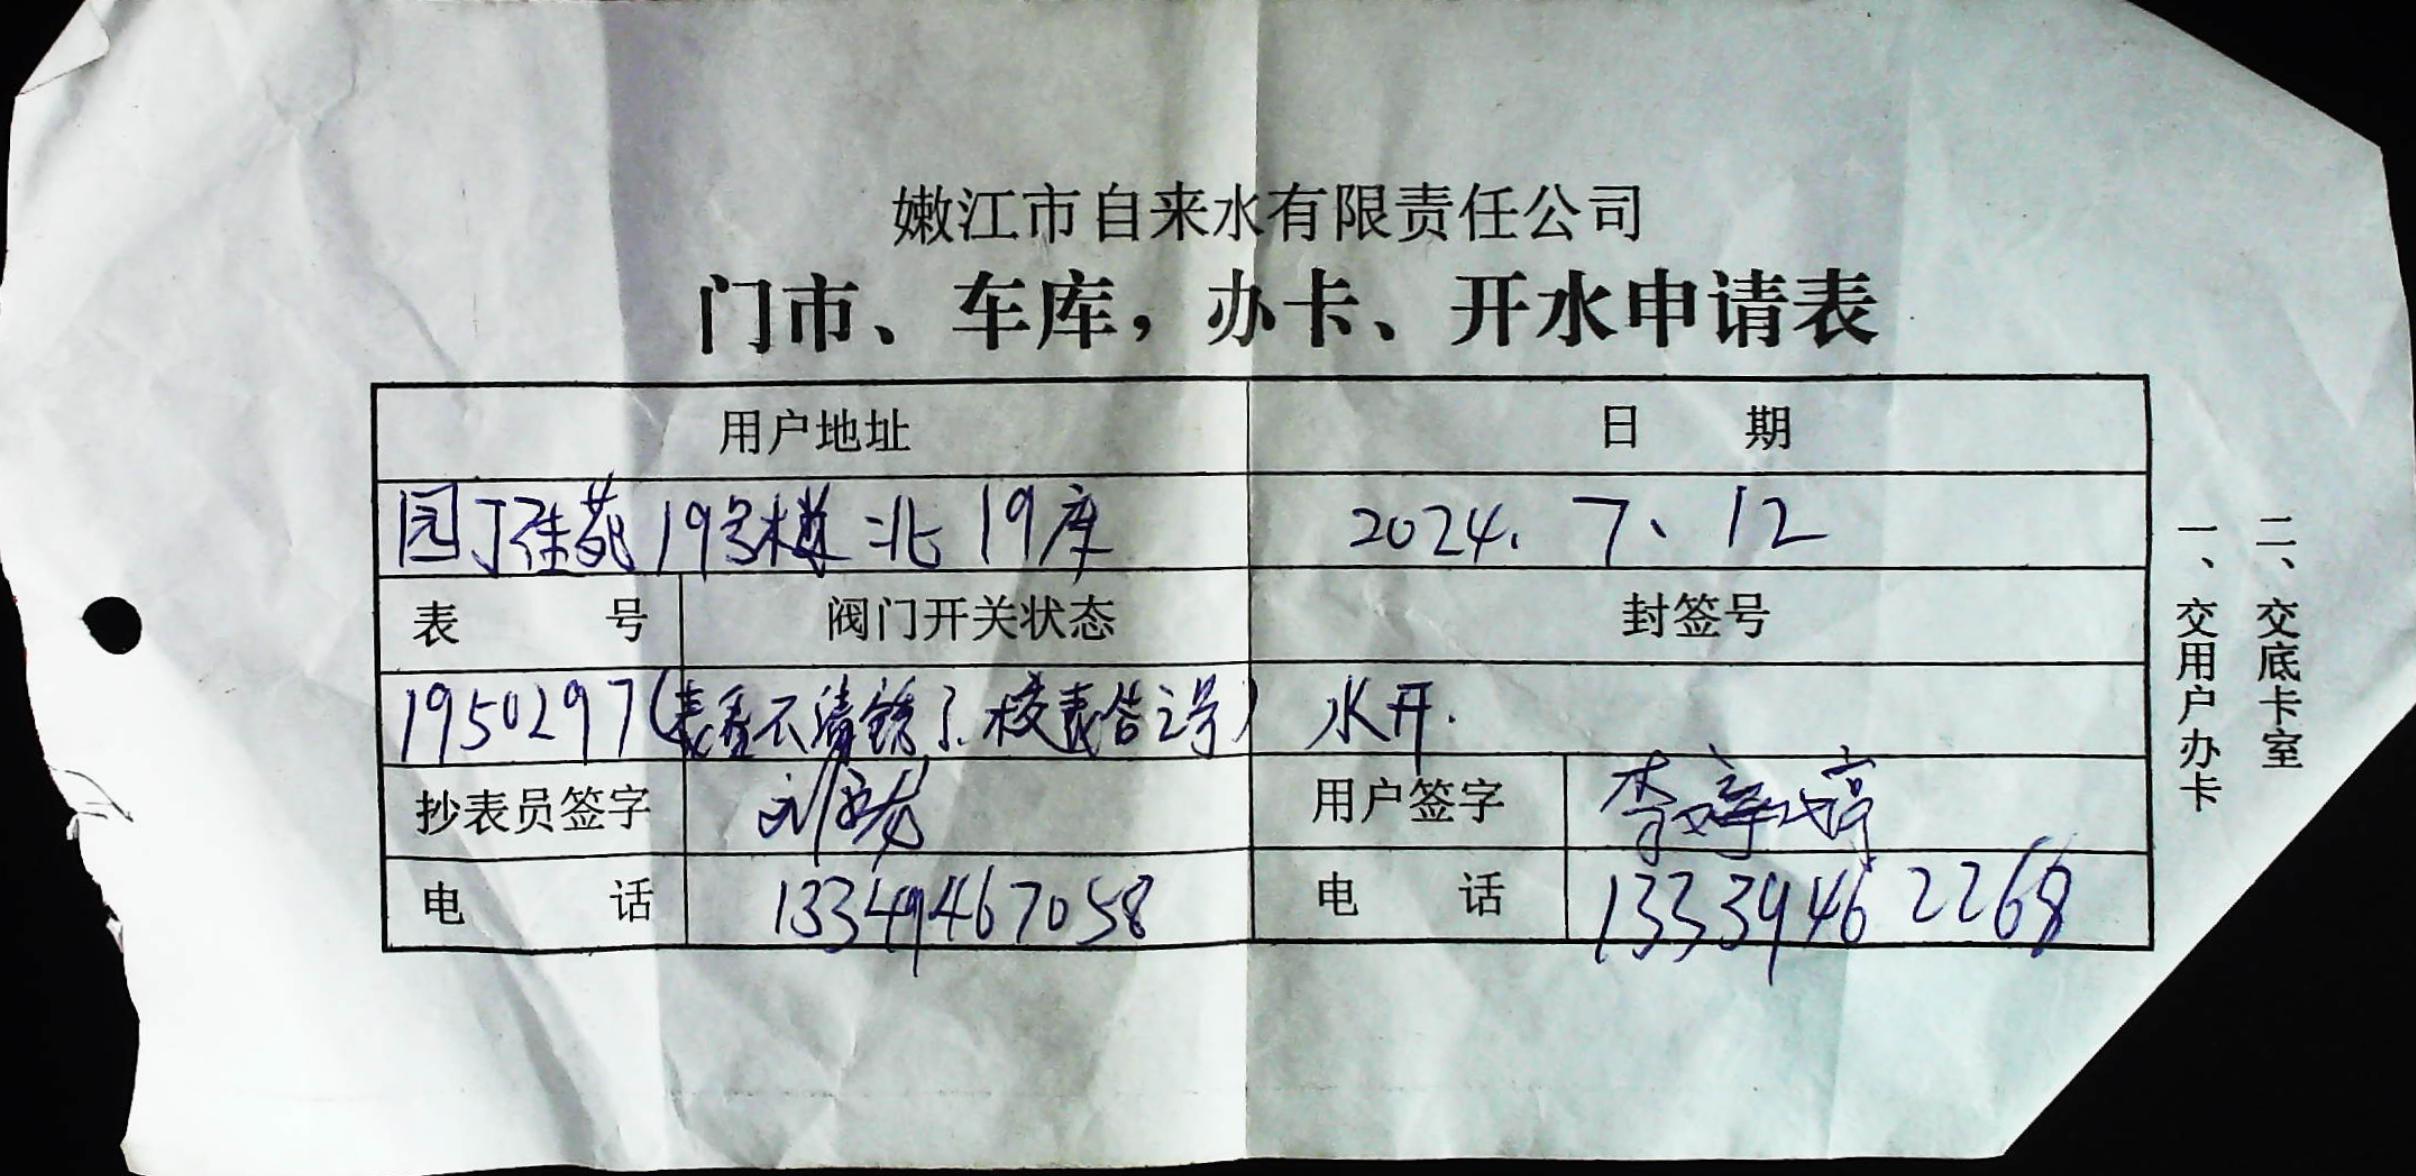 嫩江市自来水有限责任公司
门市、车库，办卡、开水申请表
用户地址 日 期
园丁佳苑19号楼北19库 2024.7、12
表 号 阀门开关状态 封签号
1950297(表看不清锈了.校表告之号) 水开.
抄表员签字 刘 用户签字 李婷婷
电 话 13349467058 电 话 13339462268
一、交用户办卡
二、交底卡室